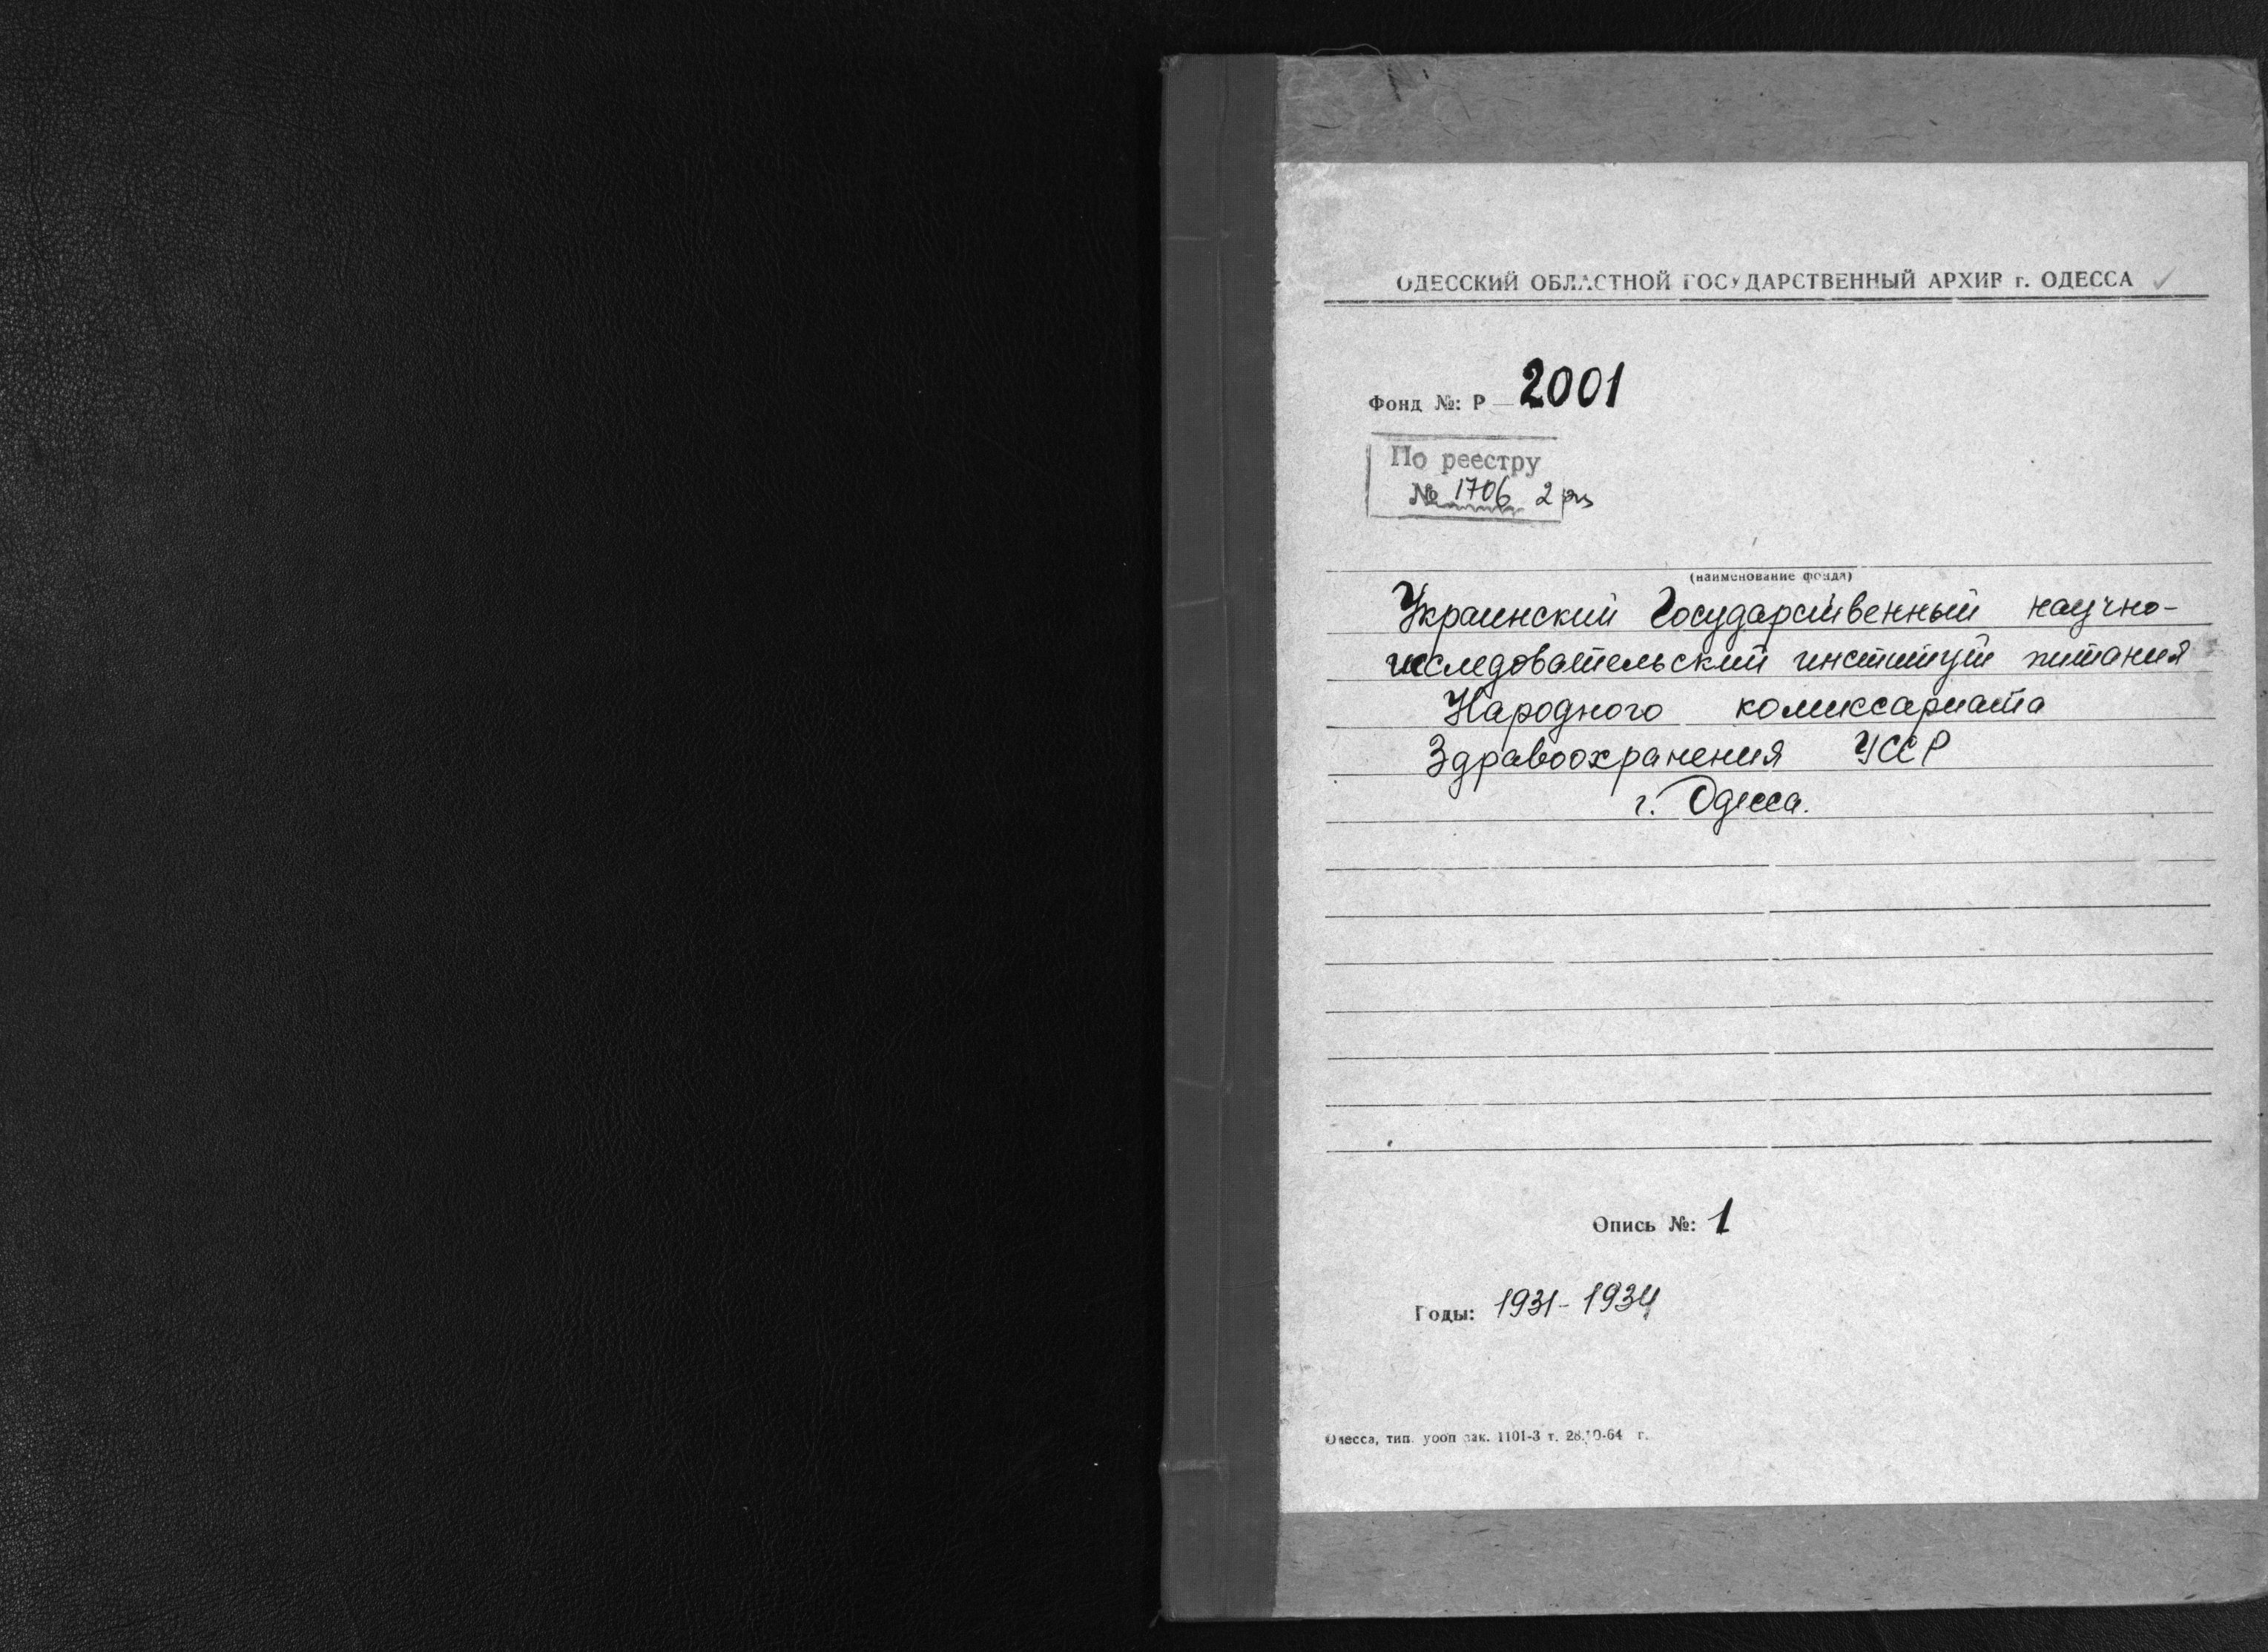 ОДЕССКИЙ ОБЛАСТНОЙ ГОСУДАРСТВЕННЫЙ АРХИВ г. ОДЕССА
Фонд №: Р 2001
По реестру
№ 1706 2
(наименование фонда)
Украинский Государственный научно-
исследовательский институт питания
Народного комиссариата
Здравоохранения УССР
г. Одесса.
Опись №: 1
Годы: 1931-1934
Одесса, тип. уооп зак. 1101-3 т. 28.10-64 г.